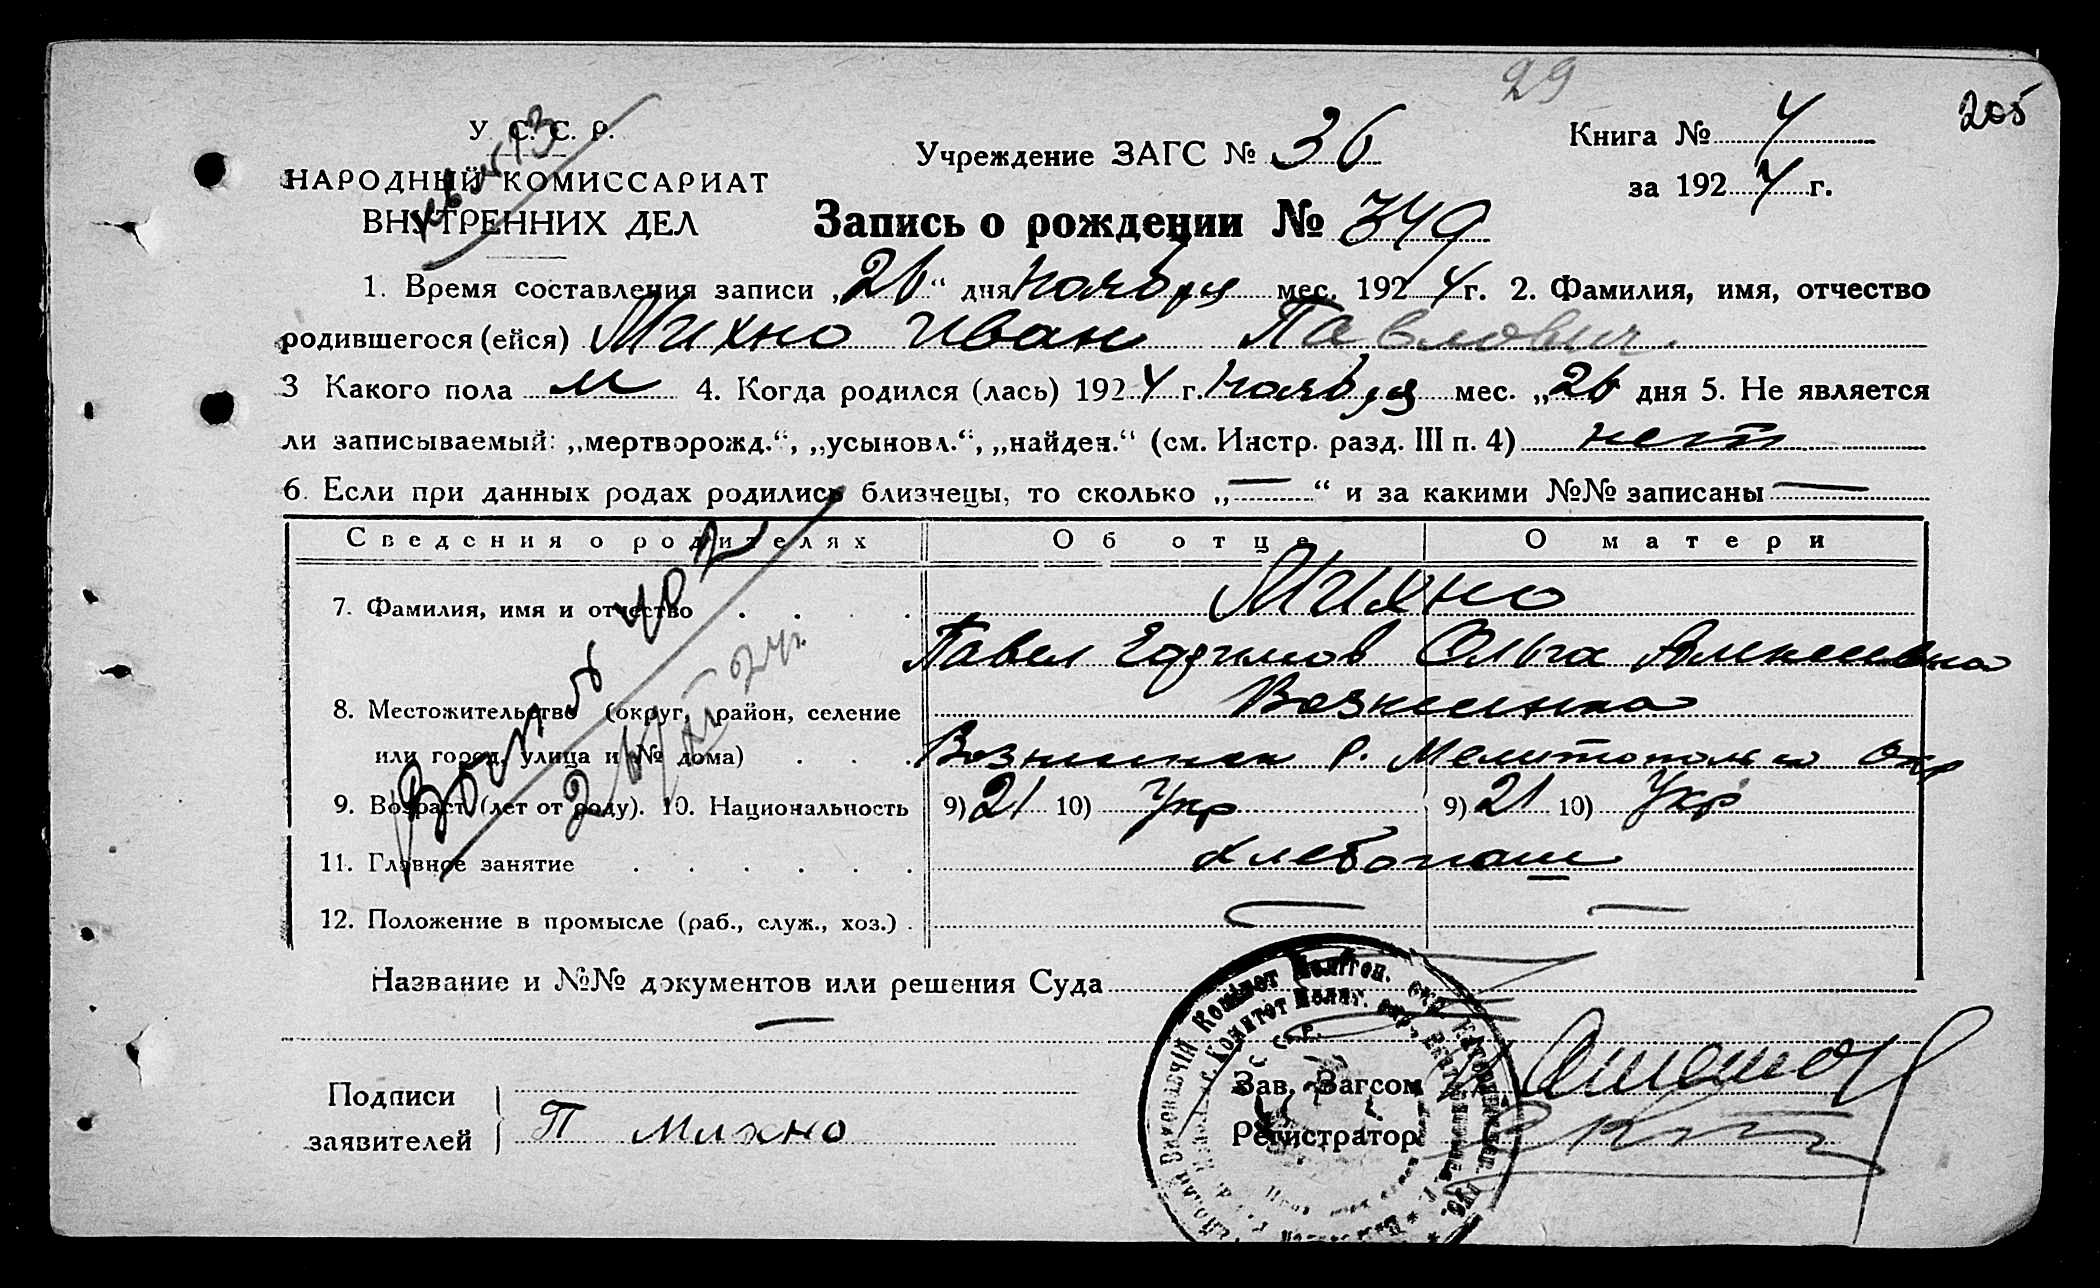 29
205
У. С. С. Р.
НАРОДНЫЙ КОМИССАРИАТ
ВНУТРЕННИХ ДЕЛ
Учреждение ЗАГС № 36
Книга № 4
за 1924 г.
Запись о рождении № 349
1. Время составления записи „26“ дня ноября мес. 1924 г. 2. Фамилия, имя, отчество
родившегося (ейся) Михно Иван Павлович.
3 Какого пола м 4. Когда родился (лась) 1924 г. ноября мес. „26 дня 5. Не является
ли записываемый: „мертворожд.“, „усыновл.“, „найден.“ (см. Инстр. разд. III п. 4) нет
6. Если при данных родах родились близнецы, то сколько „—“ и за какими №№ записаны —
Сведения о родителях Об отце О матери
7. Фамилия, имя и отчество . . . . Михно
Павел Ефимов Ольга Алексеевна
8. Местожительство (округ, район, селение Вознесенка
или город, улица и № дома) . . . Р. Мелитополь Окр
9. Возраст (лет от роду). 10. Национальность 9) 21 10) Укр 9) 21 10) Укр
11. Главное занятие . . . . . хлебопаш
12. Положение в промысле (раб., служ., хоз.) . — —
Название и №№ документов или решения Суда
—
Подписи
заявителей
П Михно
Зав. Загсом
Регистратор